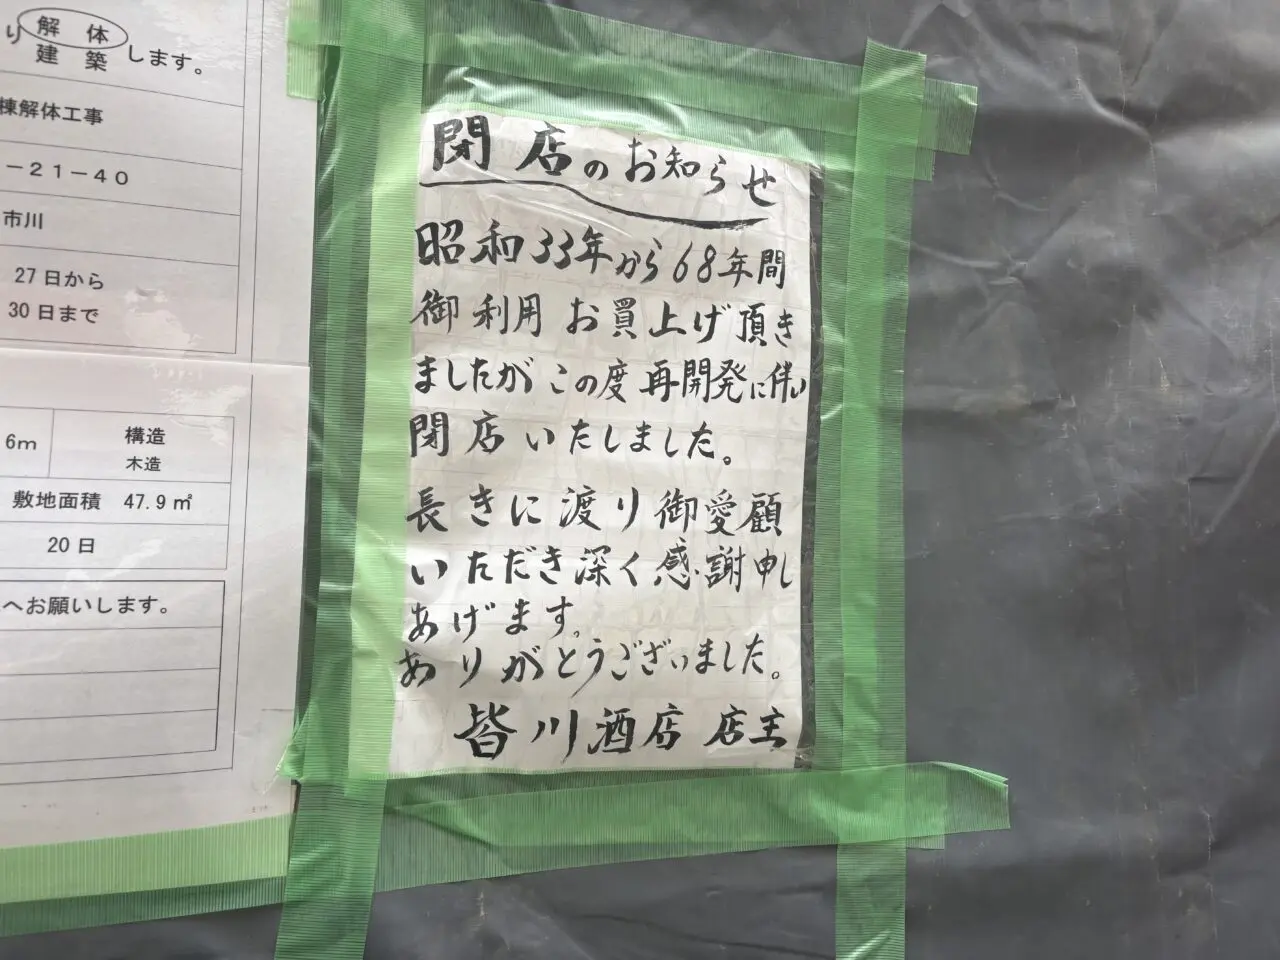 り 解体
建築 します。
棟解体工事
－２１－４０
市川
27日から
30日まで
6m 構造
木造
敷地面積 47.9㎡
20日
へお願いします。
閉店のお知らせ
昭和33年から68年間
御利用お買上げ頂き
ましたがこの度再開発に伴い
閉店いたしました。
長きに渡り御愛顧
いただき深く感謝申し
あげます。
ありがとうございました。
皆川酒店 店主